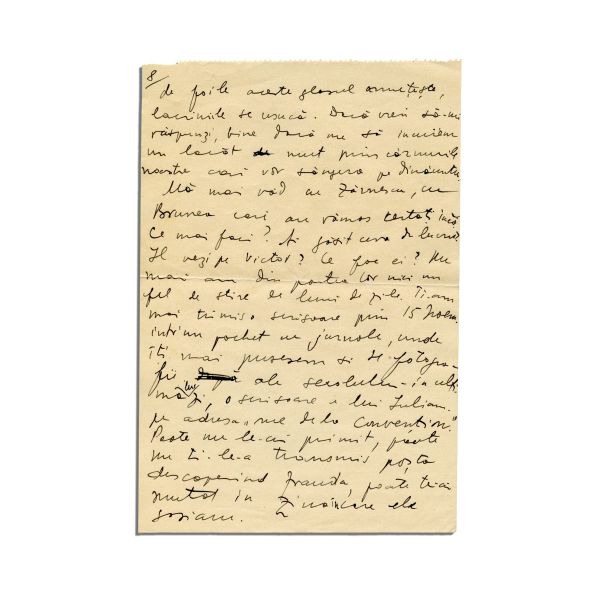 8/
de foile aceste glasul amuțește,
lacrimile se usucă. Dacă vrei să-mi
răspunzi, bine dacă nu să încuiem
un lacăt de mut prin cărnurile
noastre cari vor sângera pe dinăuntru
Mă mai văd cu Zărnescu, cu
Brunea cari au rămas certați încă
Ce mai faci? Ai găsit ceva de lucru?
Il vezi pe Victor? Ce face ei? Nu
mai am din partea lor nici un
fel de știre de luni de zile. Ti-am
mai trimis o scrisoare prin 15 Noem.
intr'un pachet cu jurnale, unde
iți mai pusesem si de fotogra-
fii ale
o scrisoare a lui Iulian.
pe adresa „rue de la Convention".
Poate nu le-ai primit, poate
nu ti-le-a transmis poșta
descoperind frauda, poate te-ai
mutat in